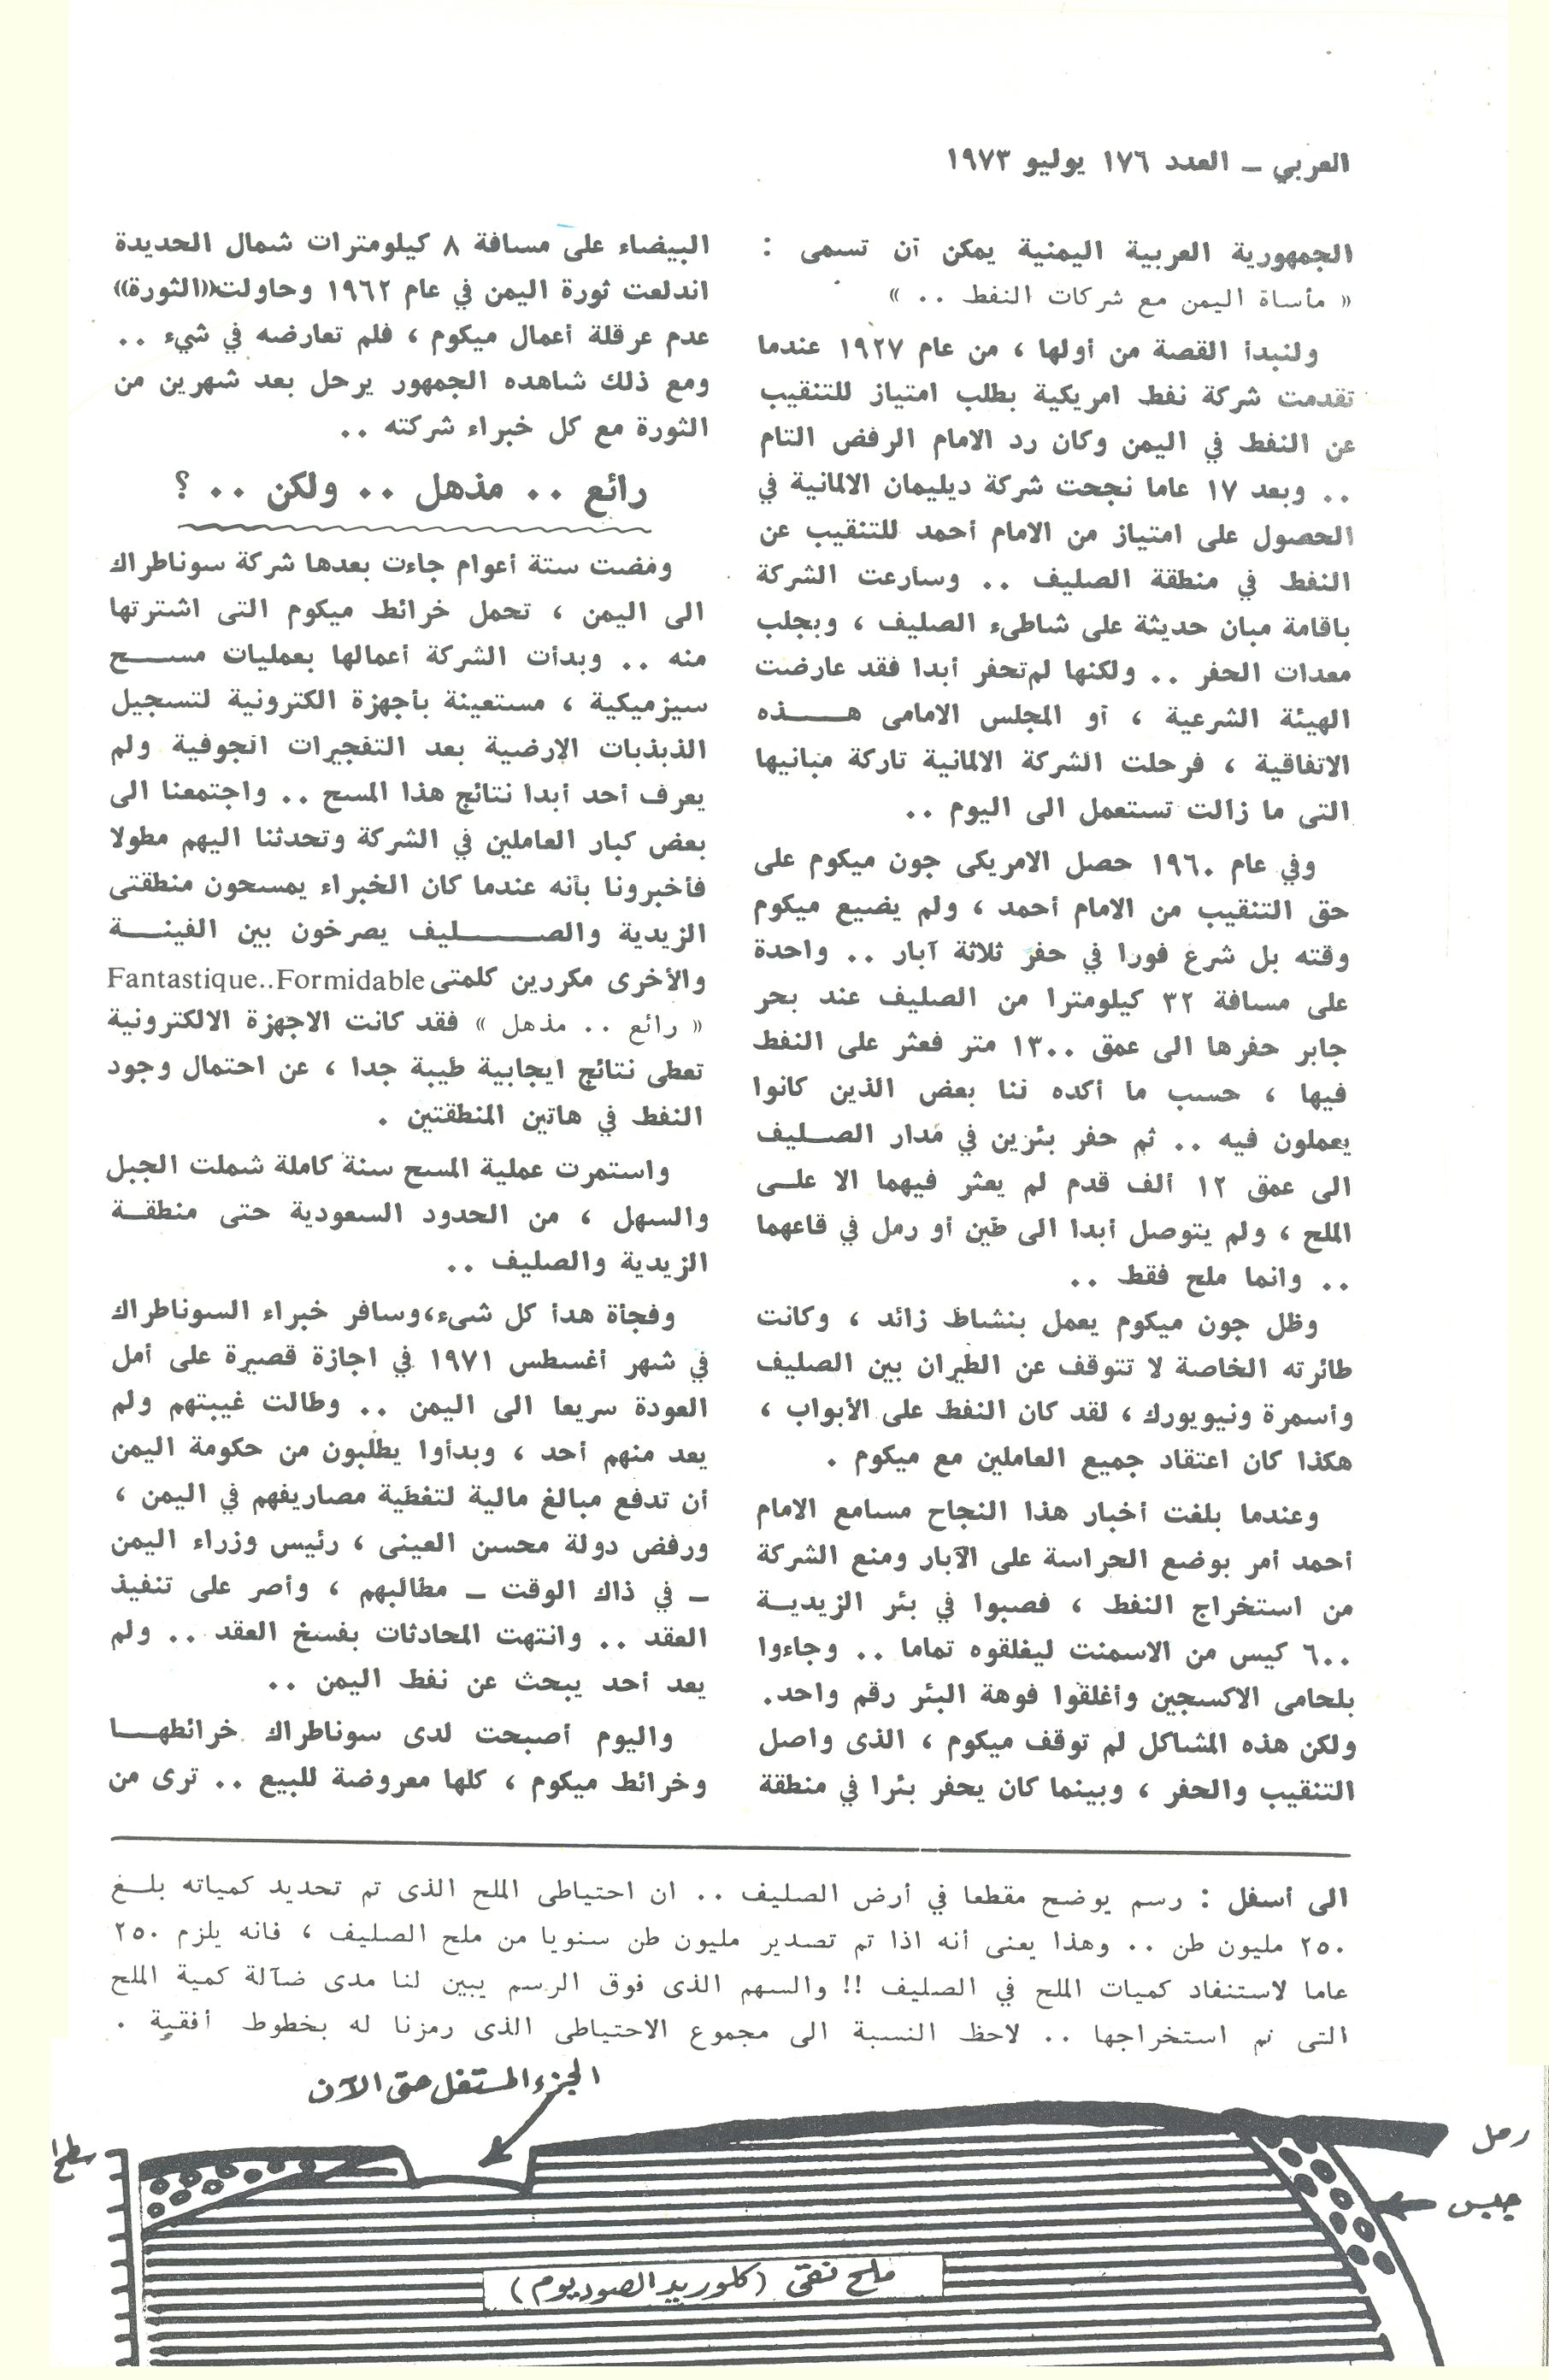 العربي ــ العدد ١٧٦ يوليو ١٩٧٣
الجمهورية العربية اليمنية يمكن أن تسمى :
« مأساة اليمن مع شركات النفط .. »
ولنبدأ القصة من أولها ، من عام ١٩٢٧ عندما
تقدمت شركة نفط امريكية بطلب امتياز للتنقيب
عن النفط في اليمن وكان رد الامام الرفض التام
.. وبعد ١٧ عاما نجحت شركة ديليمان الالمانية في
الحصول على امتياز من الامام أحمد للتنقيب عن
النفط في منطقة الصليف .. وسارعت الشركة
باقامة مبان حديثة على شاطىء الصليف ، وبجلب
معدات الحفر .. ولكنها لم تحفر أبدا فقد عارضت
الهيئة الشرعية ، أو المجلس الامامى هــــذه
الاتفاقية ، فرحلت الشركة الالمانية تاركة مبانيها
التى ما زالت تستعمل الى اليوم ..
وفي عام ١٩٦٠ حصل الامريكى جون ميكوم على
حق التنقيب من الامام أحمد ، ولم يضيع ميكوم
وقته بل شرع فورا في حفر ثلاثة آبار .. واحدة
على مسافة ٣٢ كيلومترا من الصليف عند بحر
جابر حفرها الى عمق ١٣٠٠ متر فعثر على النفط
فيها ، حسب ما أكده لنا بعض الذين كانوا
يعملون فيه .. ثم حفر بئرين في مدار الصـليف
الى عمق ١٢ ألف قدم لم يعثر فيهما الا علـى
الملح ، ولم يتوصل أبدا الى طين أو رمل في قاعهما
.. وانما ملح فقط ..
وظل جون ميكوم يعمل بنشاط زائد ، وكانت
طائرته الخاصة لا تتوقف عن الطيران بين الصليف
وأسمرة ونيويورك ، لقد كان النفط على الأبواب ،
هكذا كان اعتقاد جميع العاملين مع ميكوم .
وعندما بلغت أخبار هذا النجاح مسامع الامام
أحمد أمر بوضع الحراسة على الآبار ومنع الشركة
من استخراج النفط ، فصبوا في بئر الزيديـة
٦٠٠ كيس من الاسمنت ليغلقوه تماما .. وجاءوا
بلحامى الاكسجين وأغلقوا فوهة البئر رقم واحد.
ولكن هذه المشاكل لم توقف ميكوم ، الذى واصل
التنقيب والحفر ، وبينما كان يحفر بئرا في منطقة
البيضاء على مسافة ٨ كيلومترات شمال الحديدة
اندلعت ثورة اليمن في عام ١٩٦٢ وحاولت((الثورة))
عدم عرقلة أعمال ميكوم ، فلم تعارضه في شيء ..
ومع ذلك شاهده الجمهور يرحل بعد شهرين من
الثورة مع كل خبراء شركته ..
رائع .. مذهل .. ولكن .. ؟
ومضت ستة أعوام جاءت بعدها شركة سوناطراك
الى اليمن ، تحمل خرائط ميكوم التى اشترتها
منه .. وبدأت الشركة أعمالها بعمليات مســـح
سيزميكية ، مستعينة بأجهزة الكترونية لتسجيل
الذبذبات الارضية بعد التفجيرات الجوفية ولم
يعرف أحد أبدا نتائج هذا المسح .. واجتمعنا الى
بعض كبار العاملين في الشركة وتحدثنا اليهم مطولا
فأخبرونا بأنه عندما كان الخبراء يمسحون منطقتى
الزيدية والصـــــليف يصرخون بين الفينـــة
والأخرى مكررين كلمتى Fantastique..Formidable
« رائع .. مذهل » فقد كانت الاجهزة الالكترونية
تعطى نتائج ايجابية طيبة جدا ، عن احتمال وجود
النفط في هاتين المنطقتين .
واستمرت عملية المسح سنة كاملة شملت الجبل
والسهل ، من الحدود السعودية حتى منطقـة
الزيدية والصليف ..
وفجأة هدأ كل شىء، وسافر خبراء السوناطراك
في شهر أغسطس ١٩٧١ في اجازة قصيرة على أمل
العودة سريعا الى اليمن .. وطالت غيبتهم ولم
يعد منهم أحد ، وبدأوا يطلبون من حكومة اليمن
أن تدفع مبالغ مالية لتغطية مصاريفهم في اليمن ،
ورفض دولة محسن العينى ، رئيس وزراء اليمن
ــ في ذاك الوقت ــ مطالبهم ، وأصر على تنفيذ
العقد .. وانتهت المحادثات بفسخ العقد .. ولم
يعد أحد يبحث عن نفط اليمن ..
واليوم أصبحت لدى سوناطراك خرائطهـــا
وخرائط ميكوم ، كلها معروضة للبيع .. ترى من
الى أسفل : رسم يوضح مقطعا في أرض الصليف .. ان احتياطى الملح الذى تم تحديد كمياته بلـغ
٢٥٠ مليون طن .. وهذا يعنى أنه اذا تم تصدير مليون طن سنويا من ملح الصليف ، فانه يلزم ٢٥٠
عاما لاستنفاد كميات الملح في الصليف !! والسهم الذى فوق الرسم يبين لنا مدى ضآلة كمية الملح
التى تم استخراجها .. لاحظ النسبة الى مجموع الاحتياطى الذى رمزنا له بخطوط أفقية .
الجزء المستغل حتى الآن
سطح
رمل
جبس
ملح نقى (كلوريد الصوديوم)